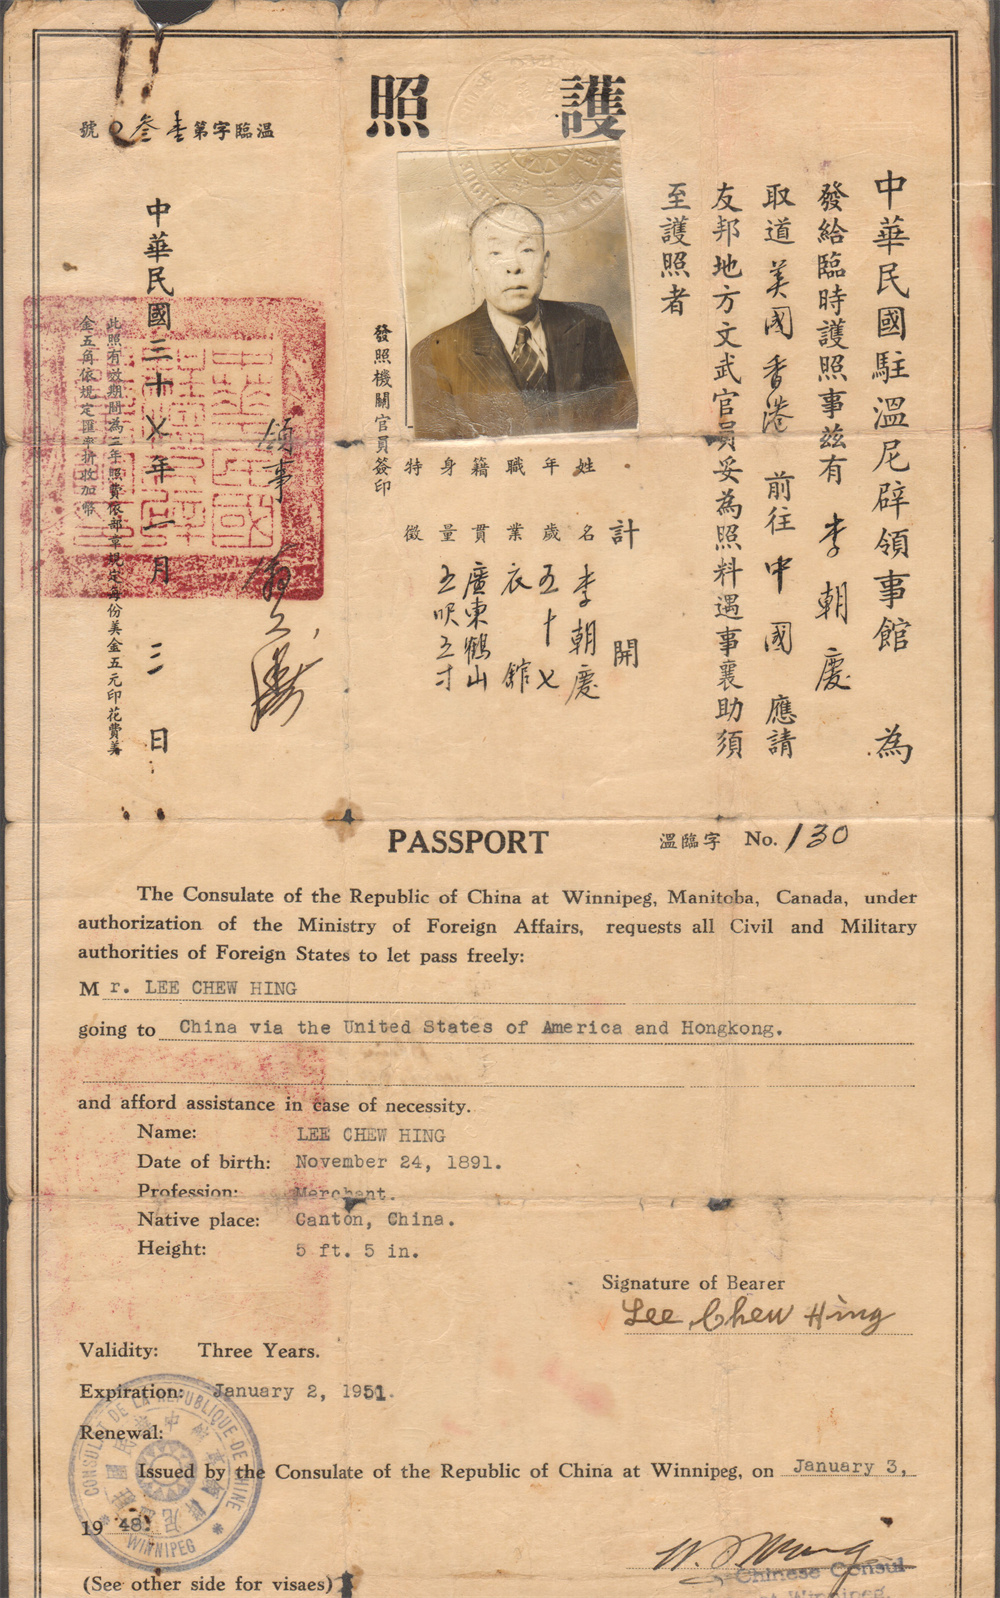 護照
中華民國駐溫尼辟領事館 為
發給臨時護照事兹有 李朝慶
取道 美國香港 前往 中國 應請
友邦地方文武官員妥為照料遇事襄助須
至護照者
計開
姓名 李朝慶
年歲 五十七
職業 衣館
籍貫 廣東鶴山
身量 五呎五寸
特徵
發照機關官員簽印
領事
中華民國三十七年一月三日
此照有效期間為三年照費依部章規定每份美金五元印花費美
金五角依規定匯率折收加幣
溫臨字第 號
PASSPORT
溫臨字 No. 130
The Consulate of the Republic of China at Winnipeg, Manitoba, Canada, under
authorization of the Ministry of Foreign Affairs, requests all Civil and Military
authorities of Foreign States to let pass freely:
Mr. LEE CHEW HING
going to China via the United States of America and Hongkong.
and afford assistance in case of necessity.
Name: LEE CHEW HING
Date of birth: November 24, 1891.
Profession: Merchant.
Native place: Canton, China.
Height: 5 ft. 5 in.
Signature of Bearer
Lee Chew Hing
Validity: Three Years.
Expiration: January 2, 1951.
Renewal:
Issued by the Consulate of the Republic of China at Winnipeg, on January 3,
1948.
CONSULAT DE LA REPUBLIQUE DE CHINE
WINNIPEG
Chinese Consul
at Winnipeg.
(See other side for visaes)